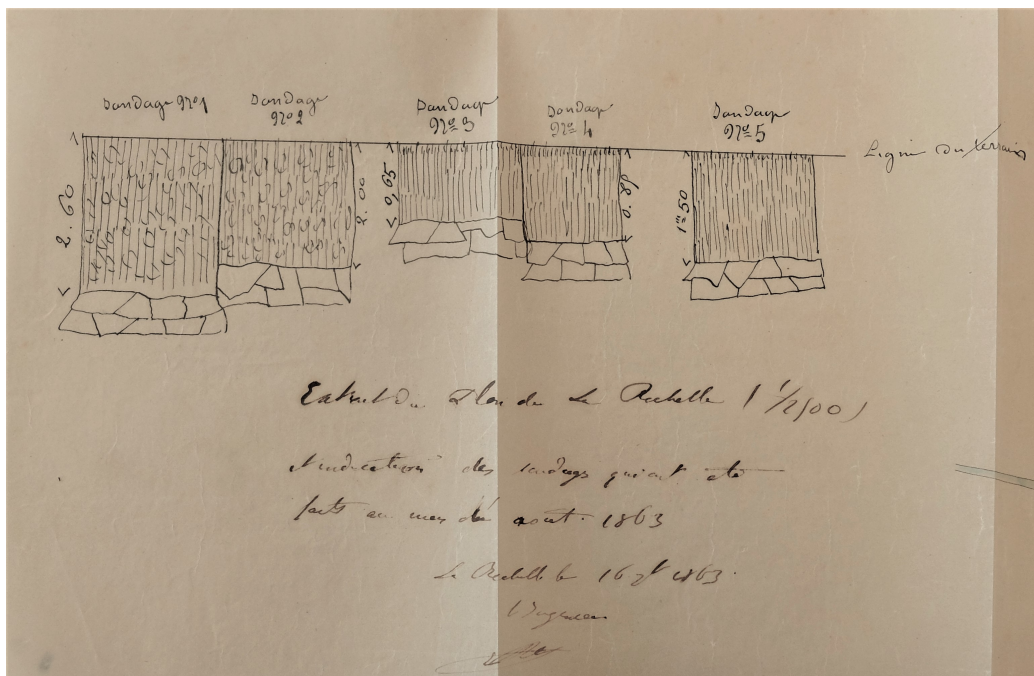 Sondage Nº1
Sondage
Nº 2
Sondage
Nº 3
Sondage
Nº 4
Sondage
Nº 5
Ligne du terrain
2.60
2.00
0,65
0.86
1m50
Extrait du Plan de La Rochelle (1/2500)
& indications des sondages qui ont été
faits au mois de août. 1863
La Rochelle le 16 1863.
L'Ingénieur